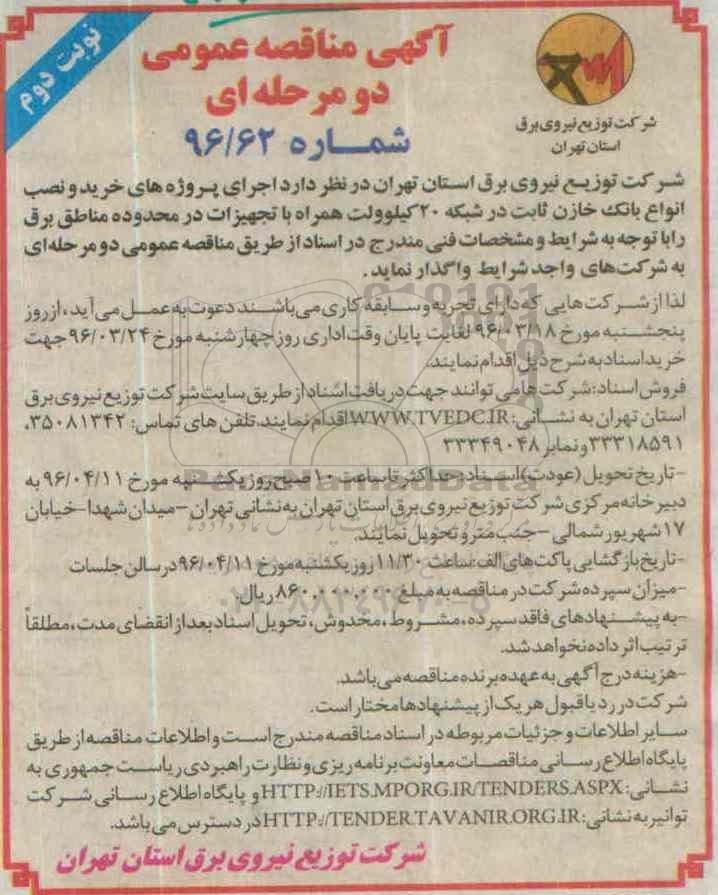 نوبت دوم
آگهی مناقصه عمومی
دو مرحله ای
شماره ۹۶/۶۲
شرکت توزیع نیروی برق
استان تهران
شرکت توزیع نیروی برق استان تهران در نظر دارد اجرای پروژه های خرید و نصب
انواع بانک خازن ثابت در شبکه ۲۰ کیلوولت همراه با تجهیزات در محدوده مناطق برق
را با توجه به شرایط و مشخصات فنی مندرج در اسناد از طریق مناقصه عمومی دو مرحله ای
به شرکت های واجد شرایط واگذار نماید.
لذا از شرکت هایی که دارای تجربه و سابقه کاری می باشند دعوت به عمل می آید، از روز
پنجشنبه مورخ ۹۶/۰۳/۱۸ لغایت پایان وقت اداری روز چهارشنبه مورخ ۹۶/۰۳/۲۴ جهت
خرید اسناد به شرح ذیل اقدام نمایند.
فروش اسناد: شرکت ها می توانند جهت دریافت اسناد از طریق سایت شرکت توزیع نیروی برق
استان تهران به نشانی: WWW.TVEDC.IR اقدام نمایند. تلفن های تماس: ۳۵۰۸۱۳۴۲،
۳۳۳۱۸۵۹۱ و نمابر ۳۳۳۴۹۰۴۸
-تاریخ تحویل (عودت) اسناد: حداکثر تا ساعت ۱۰ صبح روز یکشنبه مورخ ۹۶/۰۴/۱۱ به
دبیرخانه مرکزی شرکت توزیع نیروی برق استان تهران به نشانی تهران -میدان شهدا-خیابان
۱۷ شهریور شمالی -جنب مترو تحویل نمایند.
-تاریخ بازگشایی پاکت های الف: ساعت ۱۱/۳۰ روز یکشنبه مورخ ۹۶/۰۴/۱۱ در سالن جلسات
-میزان سپرده شرکت در مناقصه به مبلغ ۸۶۰,۰۰۰,۰۰۰ ریال
-به پیشنهادهای فاقد سپرده، مشروط، مخدوش، تحویل اسناد بعد از انقضای مدت، مطلقاً
ترتیب اثر داده نخواهد شد.
-هزینه درج آگهی به عهده برنده مناقصه می باشد.
شرکت در رد یا قبول هر یک از پیشنهادها مختار است.
سایر اطلاعات و جزئیات مربوطه در اسناد مناقصه مندرج است و اطلاعات مناقصه از طریق
پایگاه اطلاع رسانی مناقصات معاونت برنامه ریزی و نظارت راهبردی ریاست جمهوری به
نشانی: HTTP://IETS.MPORG.IR/TENDERS.ASPX و پایگاه اطلاع رسانی شرکت
توانیر به نشانی: HTTP://TENDER.TAVANIR.ORG.IR در دسترس می باشد.
شرکت توزیع نیروی برق استان تهران
ParsNamadData
۰۲۱-۸۸۳۴۹۶۷۰-۵